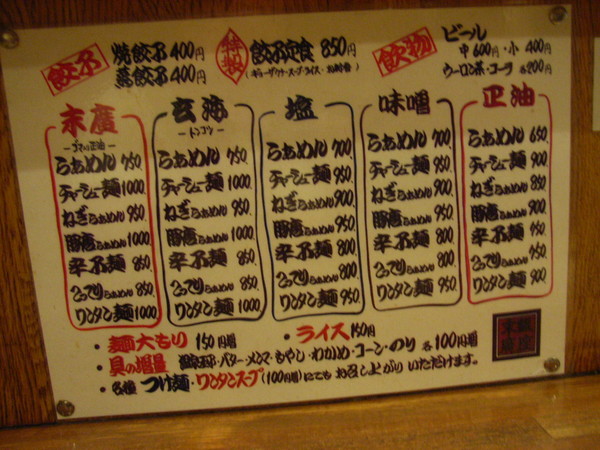 餃子
焼餃子 400円
蒸餃子 400円
特製
餃子定食 850円
飲物
ビール
中 600円・小 400円
ウーロン茶・コーラ 各200円
末廣
－ゴマ正油－
らぁめん 750.
チャーシュー麺 1000.
ねぎらぁめん 950.
らぁめん 1000.
辛子麺 850.
こってりらぁめん 850.
ワンタン麺 1000
玄海
－トンコツ－
らぁめん 750.
チャーシュー麺 1000.
ねぎらぁめん 950.
らぁめん 1000.
辛子麺 850.
こってりらぁめん 850.
ワンタン麺 1000
塩
らぁめん 700.
チャーシュー麺 950.
ねぎらぁめん 900.
らぁめん 950.
辛子麺 800.
こってりらぁめん 800.
ワンタン麺 950
味噌
らぁめん 700.
チャーシュー麺 950.
ねぎらぁめん 900.
らぁめん 950.
辛子麺 800.
こってりらぁめん 800.
ワンタン麺 950.
正油
らぁめん 650.
チャーシュー麺 900.
ねぎらぁめん 850.
らぁめん 900.
辛子麺 750.
こってりらぁめん 750.
ワンタン麺 900.
・麺大もり 150円増
・ライス 150円
・具の増量 バター・メンマ・もやし・わかめ・コーン・のり 各100円増
・各種 つけ麺・ワンタンスープ(100円増)にてもお召し上がりいただけます。